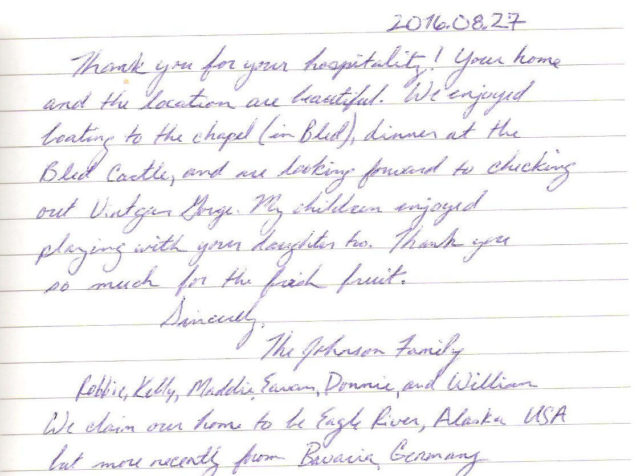 2016.08.27
Thank you for your hospitality! Your home
and the location are beautiful. We enjoyed
boating to the chapel (in Bled), dinner at the
Bled Castle, and are looking forward to checking
out Vintgar Gorge. My children enjoyed
playing with your daughter too. Thank you
so much for the fresh fruit.
Sincerely,
The Johnson Family
Robbie, Kelly, Maddie, Donnie, and William
We claim our home to be Eagle River, Alaska USA
but more recently from Bavaria, Germany